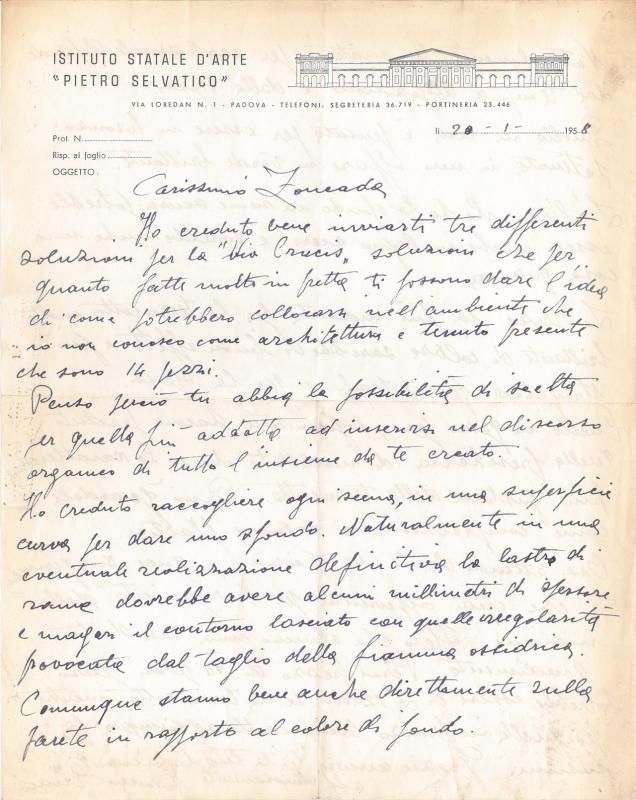 ISTITUTO STATALE D'ARTE
"PIETRO SELVATICO"
VIA LOREDAN N. 1 - PADOVA - TELEFONI, SEGRETERIA 36.719 - PORTINERIA 23.446
li 20 - 1 - 1958
Prot. N.
Risp. al foglio
OGGETTO:
Carissimo Zoncada
Ho creduto bene inviarti tre differenti
soluzioni per la "Via Crucis", soluzioni che per
quanto fatte molto in fretta ti possono dare l'idea
di come potrebbero collocarsi nell'ambiente che
io non conosco come architettura e tenuto presente
che sono 14 pezzi.
Penso perciò tu abbia la possibilità di scelta
per quella più addatta ad inserirsi nel discorso
organico di tutto l'insieme da te creato.
Ho creduto raccogliere ogni scena, in una superficie
curva per dare uno sfondo. Naturalmente in una
eventuale realizzazione definitiva la lastra di
rame dovrebbe avere alcuni millimetri di spessore
e magari il contorno lasciato con quelle irregolarità
provocate dal taglio della fiamma ossidrica.
Comunque stanno bene anche direttamente sulla
parete in rapporto al colore di fondo.